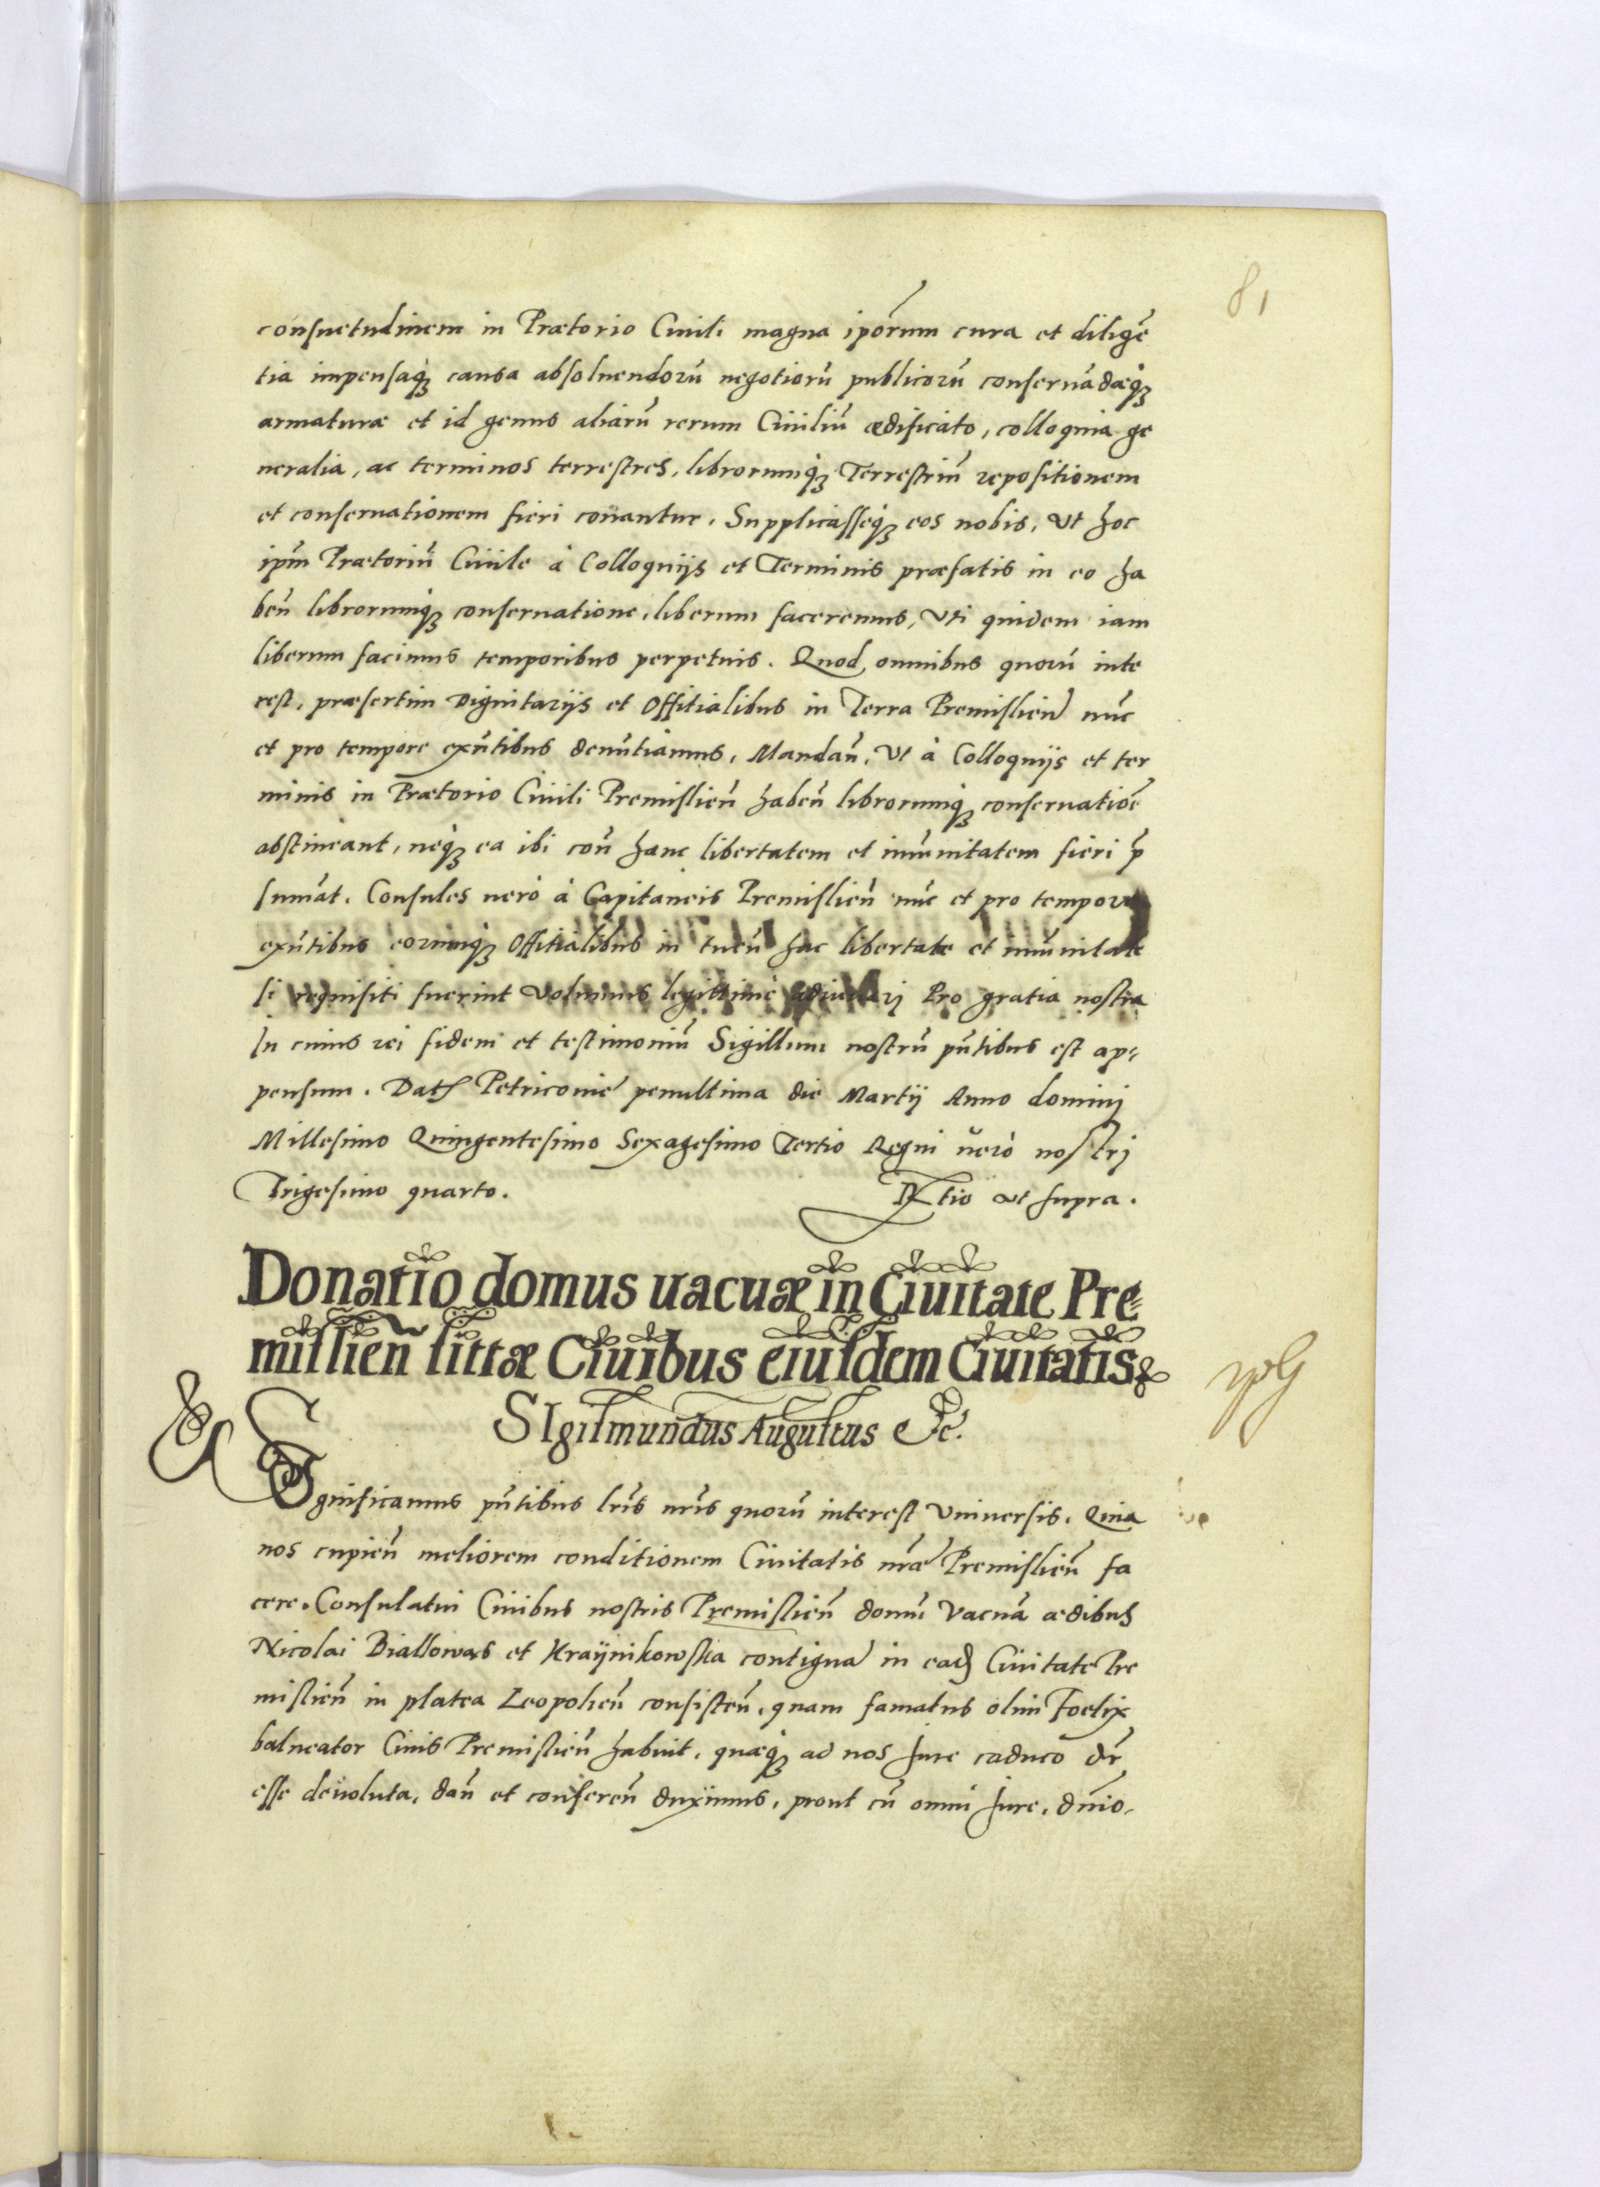 81
consuetudinem in Prætorio Ciuili magna ipõrum cura et diligẽ
tia impensaq̃ꝫ causa absoluendorũ negotiorũ publicorũ conseruãdæq̃ꝫ
armaturæ et id genus aliarũ rerum Ciuiliũ ædificato, colloquia ge
neralia, ac terminos terrestres, librorumq̃ꝫ Terrestriũ repositionem
et conseruationem fieri conantur. Supplicasseq̃ꝫ eos nobis, Vt hoc
ipm̃ Prætoriũ Ciuile à Colloquijs et Terminis præfatis in eo ha
beñ librorumq̃ꝫ conseruatione, liberum faceremus, Vti quidem iam
liberum facimus temporibus perpetuis. Quod, omnibus quorũ inte
rest, præsertim Dignitarijs et Offitialibus in Terra Premislieñ nũc
et pro tempore exñtibus denũtiamus, Mandañ, Vt à Colloquijs et ter
minis in Prætorio Ciuili Premislieñ habeñ librorumq̃ꝫ conseruatiõe
abstineant, neq̃ꝫ ea ibi coñ hanc libertatem et imũnitatem fieri p̃
sumãt. Consules uerò à Capitaneis Premislieñ nũc et pro tempore
exñtibus eorumq̃ꝫ Offitialibus in tueñ hac libertate et imũnitate
si requisiti fuerint Volumus legittimè adiuuarj Pro gratia nostra
In cuius rei fidem et testimoniũ Sigillum nostrũ pñtibus est ap⸗
pensum. Datȝ Petricouiæ penultima die Martij Anno dominj
Millesimo Quingentesimo Sexagesimo Tertio Regni uerò nostrj
Trigesimo quarto. Rãtio ut supra.
Donatio domus uacuæ in Ciuitate Pre⸗
mislieñ sittæ Ciuibus eiusdem Ciuitatis
SIgismundus Augustus &c.
SIgnificamus pñtibus lr̃is nr̃is quorũ interest Vniuersis. Quia
nos cupieñ meliorem conditionem Ciuitatis nr̃æ Premislieñ fa
cere. Consulatui Ciuibus nostris Premislieñ domũ Vacuã ædibus
Nicolai Biallowąs et Kraijnikowska contiguã in eadȝ Ciuitate Pre
mislieñ in platea Leopolieñ consisteñ, quam famatus olim Foelix
balneator Ciuis Premislieñ habuit, quæq̃ꝫ ad nos Jure caduco dr̃
esse deuoluta, dañ et confereñ duximus, prout cũ omni Jure, dm̃io,